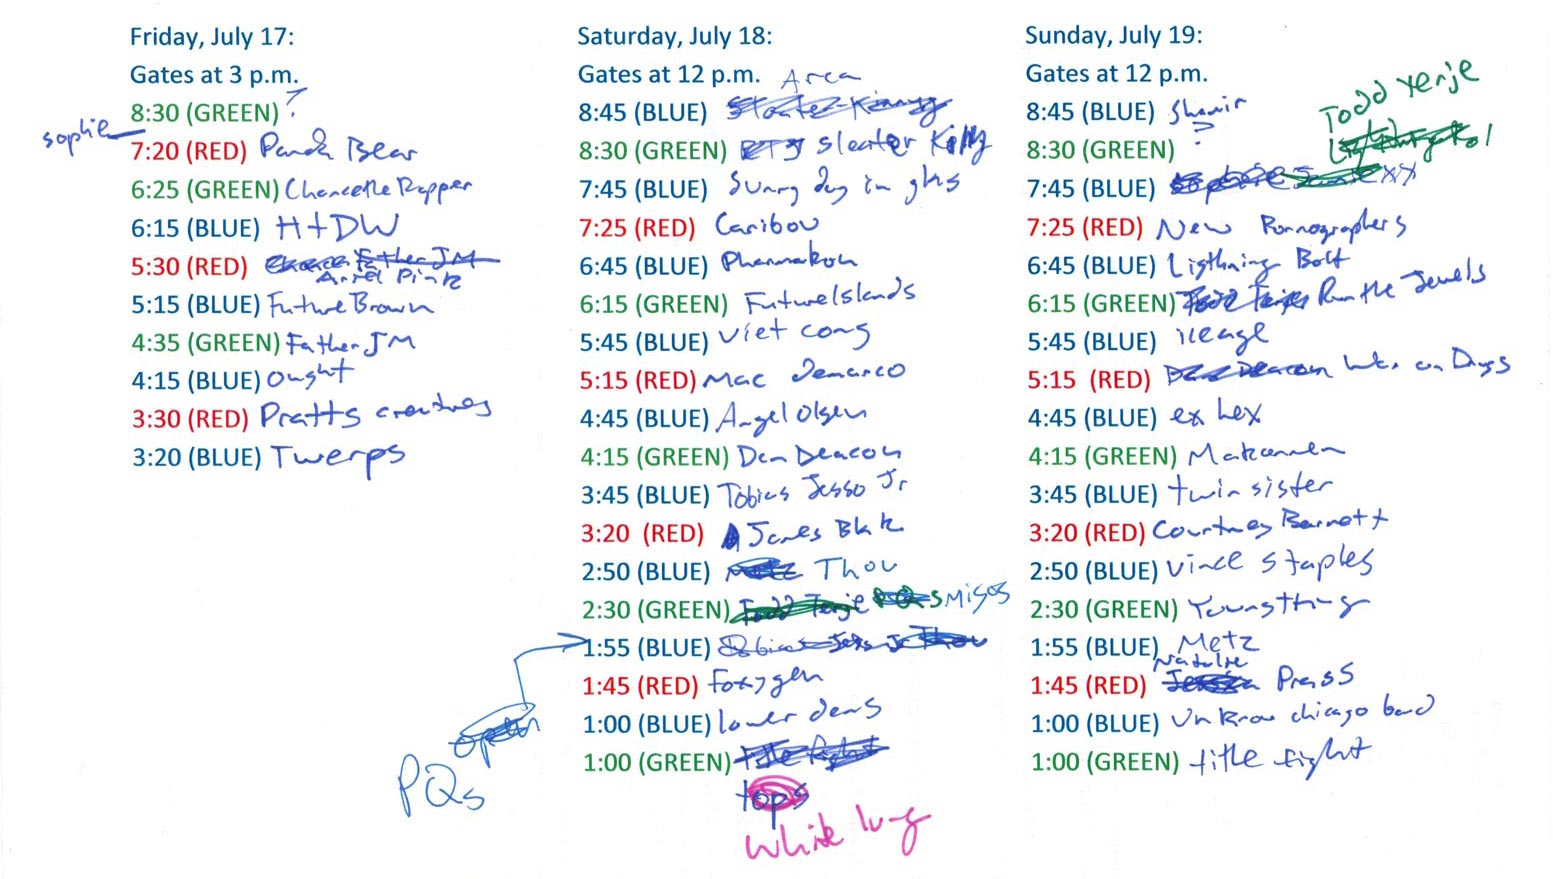 Friday, July 17:
Gates at 3 p.m.
8:30 (GREEN) ?
sophie
7:20 (RED) Panda Bear
6:25 (GREEN) Chance the Rapper
6:15 (BLUE) H+DW
5:30 (RED) Father JM
Ariel Pink
5:15 (BLUE) Future Brown
4:35 (GREEN) Father JM
4:15 (BLUE) Ought
3:30 (RED) Pratts
3:20 (BLUE) Twerps
Saturday, July 18:
Gates at 12 p.m.
Area
8:45 (BLUE) Sleater-Kinney
8:30 (GREEN) sleater
7:45 (BLUE) Sunny day in
7:25 (RED) Caribou
6:45 (BLUE) Pharmakon
6:15 (GREEN) Future Islands
5:45 (BLUE) Viet cong
5:15 (RED) Mac Demarco
4:45 (BLUE) Angel Olsen
4:15 (GREEN) Dan Deacon
3:45 (BLUE) Tobias Jesso Jr
3:20 (RED) James Blake
2:50 (BLUE) Metz Thou
2:30 (GREEN) Todd Terje PQs Migos
1:55 (BLUE) Tobias Jesso Jr Thou
1:45 (RED) Foxygen
1:00 (BLUE) lower dens
open
PQs
1:00 (GREEN) title fight
tops
White lung
Sunday, July 19:
Gates at 12 p.m.
Todd Terje
8:45 (BLUE) Shamir
?
8:30 (GREEN)
7:45 (BLUE) Sophie Jamie xx
7:25 (RED) New Pornographers
6:45 (BLUE) Ligthning Bolt
6:15 (GREEN) Todd Terje Run the Jewels
5:45 (BLUE) iceage
5:15 (RED) Dan Deacon War on Drugs
4:45 (BLUE) ex hex
4:15 (GREEN) Makonnen
3:45 (BLUE) twin sister
3:20 (RED) Courtney Barnett
2:50 (BLUE) Vince staples
2:30 (GREEN) Young thug
1:55 (BLUE) Metz
Natalie
1:45 (RED) Jessica Press
1:00 (BLUE) Unknow chicago band
1:00 (GREEN) title fight